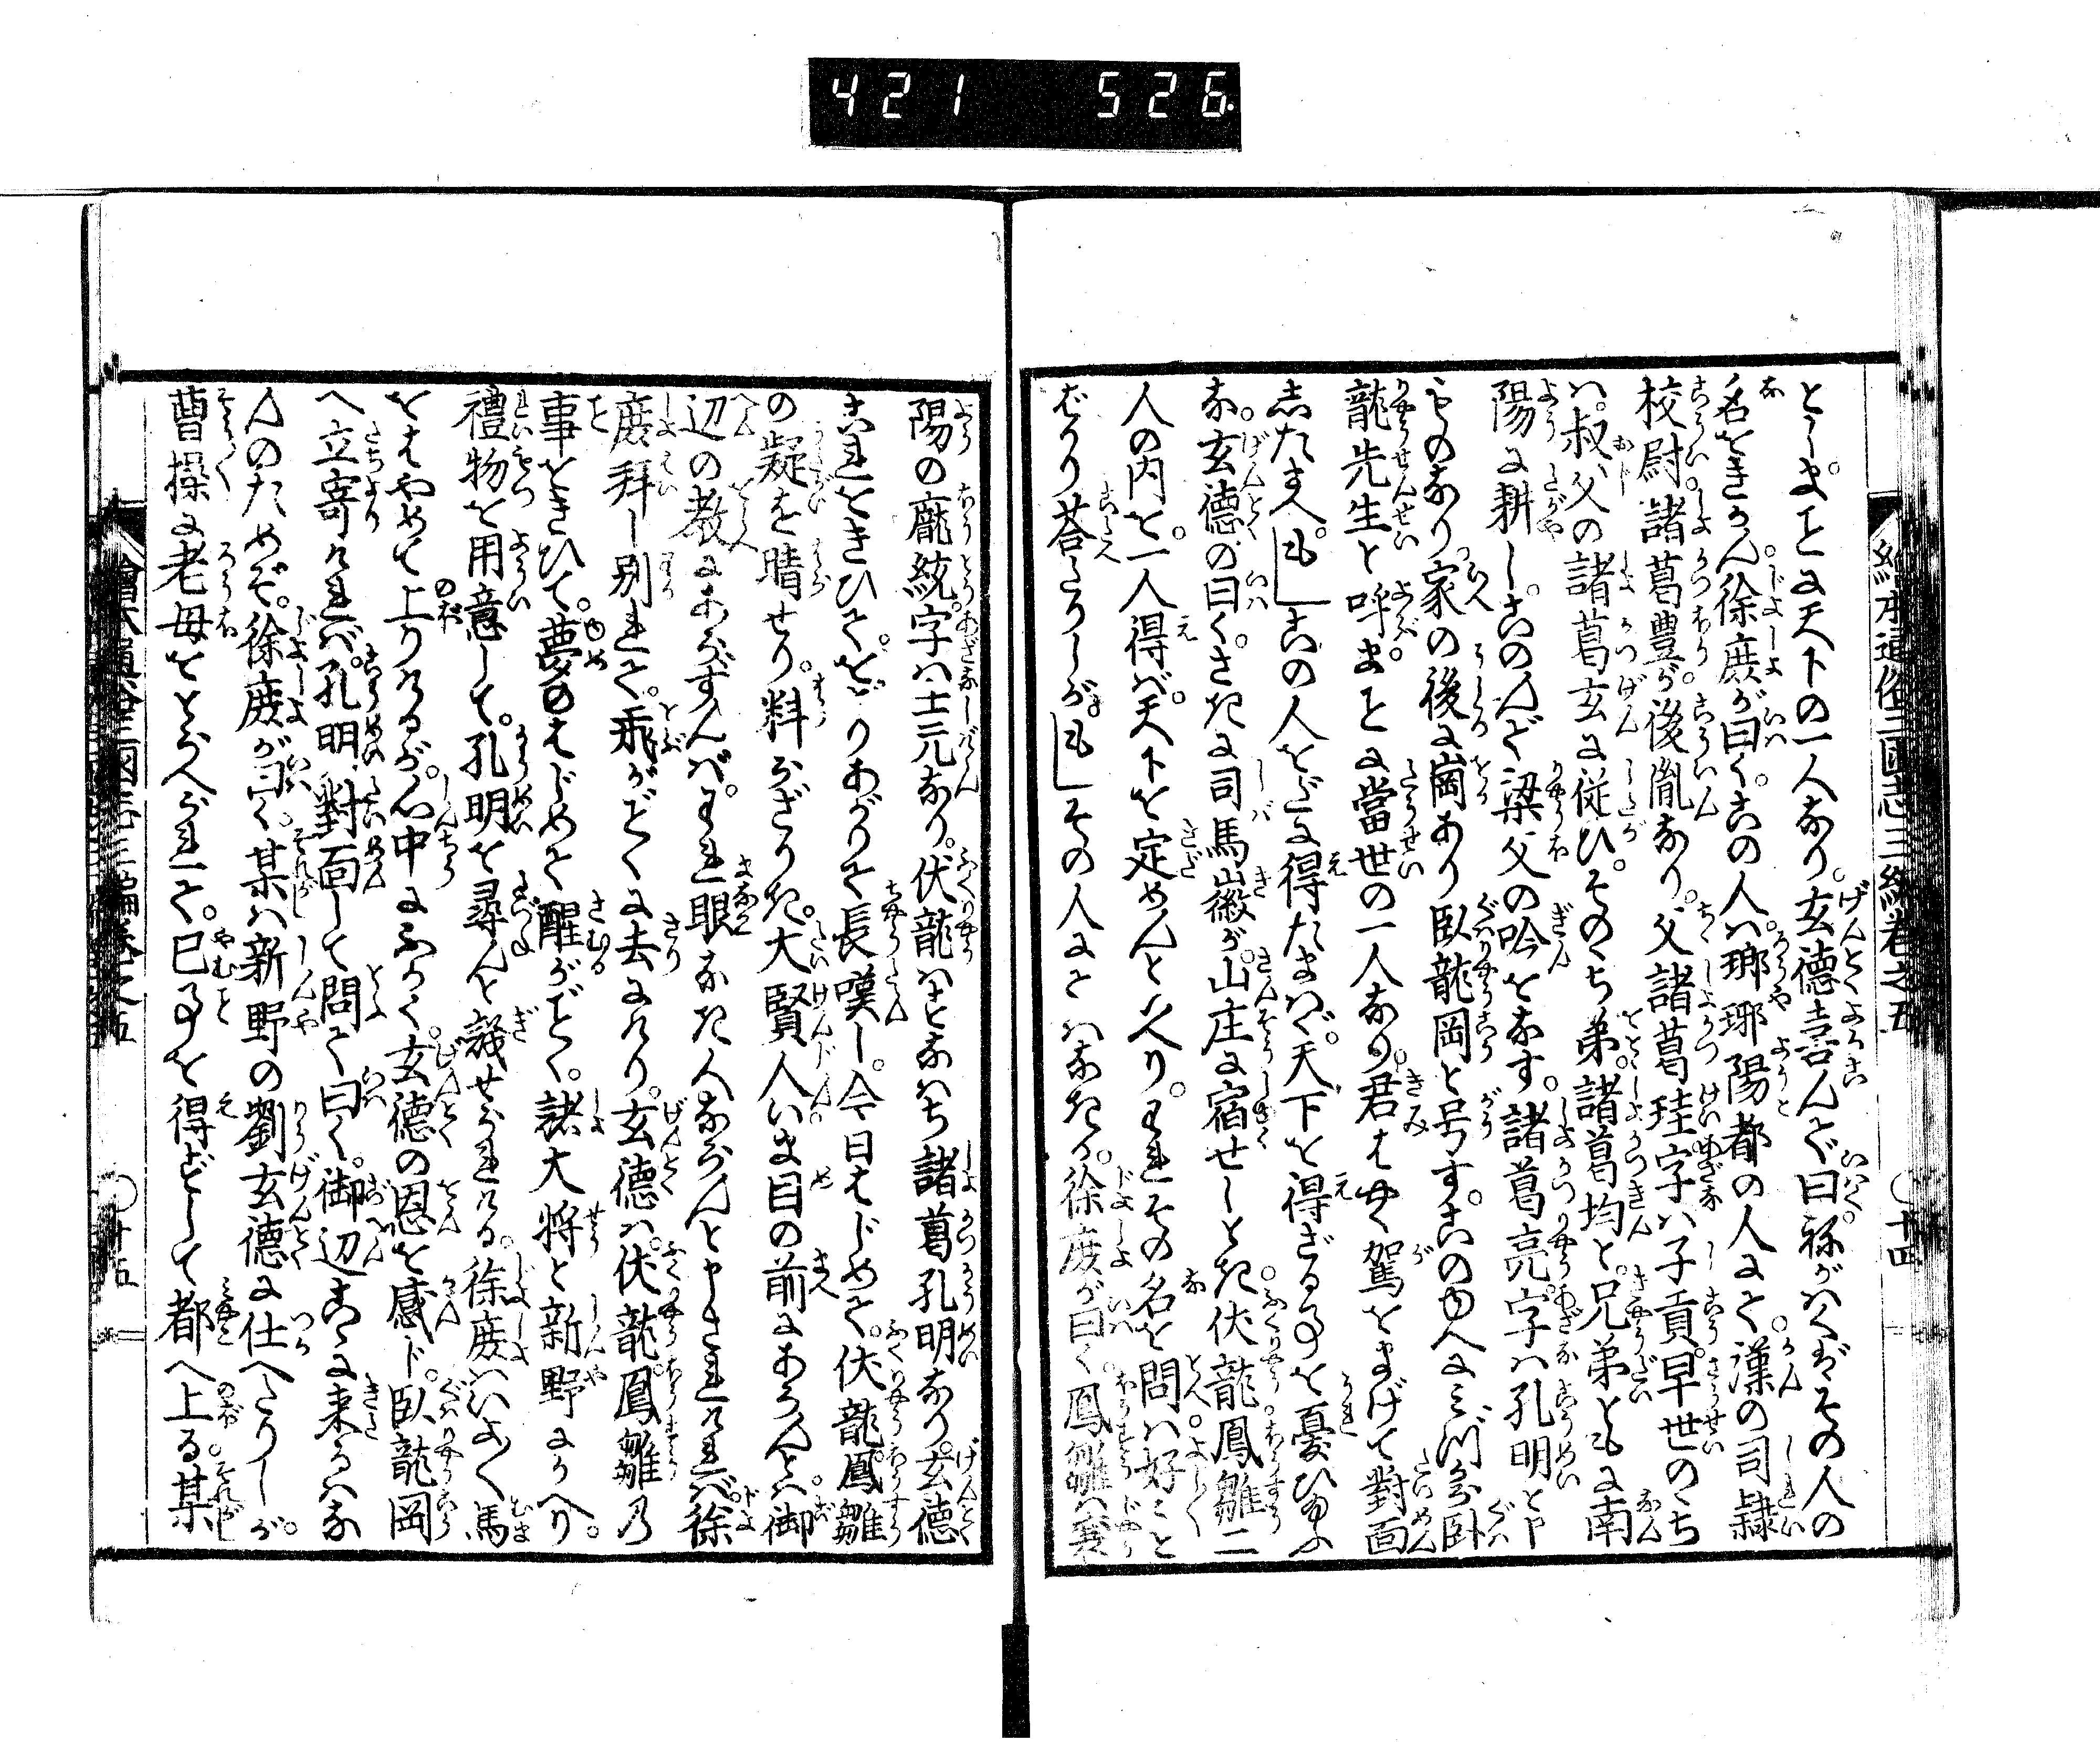 421 526.
繪本通俗三國志三編巻之五 十四
とし。まことに天下の一人なり。玄徳喜んで曰。祢がはくばその人の
名をきかん。徐庶が曰く。この人ハ。瑯琊陽都の人にて。漢の司隷
校尉。諸葛豊が。後胤なり。父諸葛珪字ハ子貢。早世のゝち
ハ。叔父の諸葛玄に従ひ。そのゝち弟。諸葛均と。兄弟ともに南
陽に耕し。このんで梁父の吟をなす。諸葛亮。字ハ孔明と申
ものなり。家の後に崗あり臥龍岡と号す。このゆへにみづから臥
龍先生と呼。まことに當世の一人なり。君はやく駕をまげて對面
したまへ。もしこの人をだに得たまハゞ。天下を得ざる事を憂ひ給ふ
な。玄徳の曰く。さきに司馬徽が。山庄に宿せしとき。伏龍鳳雛二
人の内を。一人得バ。天下を定めんと也。われその名を問ハ。好こと
ばかり荅たりしが。もしその人にてハなきか。徐庶が曰く。鳳雛ハ襄
陽の龐統。字ハ士元なり。伏龍ハすなハち諸葛孔明なり。玄徳
これをきひて。をどりあがりて長嘆し。今日はじめて。伏龍鳳雛
の疑を晴せり。料らざりき。大賢人いま目の前にあらんとハ。御
辺の教にあらずんバ。われ眼なき人ならんと申されけれバ徐
庶拜し別れて。飛がごとくに去にけり。玄徳ハ。伏龍鳳雛の
事をきひて。夢のはじめて醒がごとく。諸大将と新野にかへり。
禮物を用意して。孔明を尋んと議せられける。徐庶ハいよ〱馬
をはやめて上りけるが。心中にふかく。玄徳の恩を感ド。臥龍岡
へ立寄けれバ。孔明對面して問て曰く。御辺こゝに来るハな
んのためぞ。徐庶が曰く。某ハ新野の劉玄徳に仕へたりしが。
曹操に老母をとらへられて。已事を得ずして都へ上る。某
繪本通俗三國志三編巻之五 十五